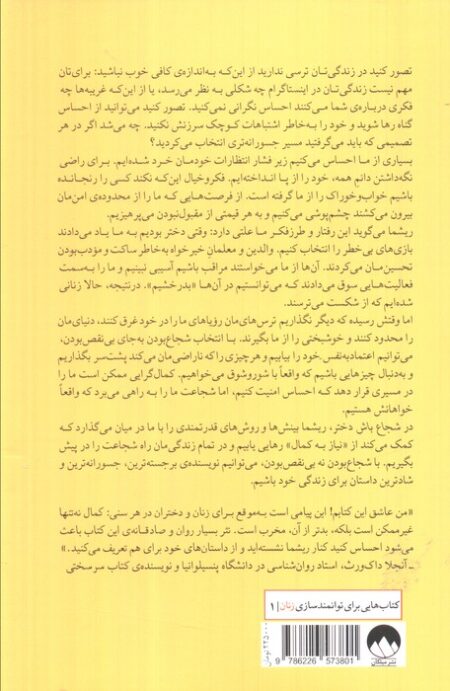 تصور کنید در زندگی‌تان ترسی ندارید از این‌که به‌اندازه‌ی کافی خوب نباشید: برای‌تان
مهم نیست زندگی‌تان در اینستاگرام چه شکلی به نظر می‌رسد، یا از این‌که غریبه‌ها چه
فکری درباره‌ی شما می‌کنند احساس نگرانی نمی‌کنید. تصور کنید می‌توانید از احساس
گناه رها شوید و خود را به‌خاطر اشتباهات کوچک سرزنش نکنید. چه می‌شد اگر در هر
تصمیمی که باید می‌گرفتید مسیر جسورانه‌تری انتخاب می‌کردید؟
بسیاری از ما احساس می‌کنیم زیر فشار انتظارات خودمان خرد شده‌ایم. برای راضی
نگه‌داشتن دائم همه، خود را از پا انداخته‌ایم. فکروخیال این‌که نکند کسی را رنجانده
باشیم خواب‌وخوراک را از ما گرفته است. از فرصت‌هایی که ما را از محدوده‌ی امن‌مان
بیرون می‌کشند چشم‌پوشی می‌کنیم و به هر قیمتی از مقبول‌نبودن می‌پرهیزیم.
ریشما می‌گوید این رفتار و طرزفکر ما علتی دارد: وقتی دختر بودیم به ما یاد می‌دادند
بازی‌های بی‌خطر را انتخاب کنیم. والدین و معلمان خیرخواه به‌خاطر ساکت و مؤدب‌بودن
تحسین‌مان می‌کردند. آن‌ها از ما می‌خواستند مراقب باشیم آسیبی نبینیم و ما را به‌سمت
فعالیت‌هایی سوق می‌دادند که می‌توانستیم در آن‌ها «بدرخشیم». درنتیجه، حالا زنانی
شده‌ایم که از شکست می‌ترسند.
اما وقتش رسیده که دیگر نگذاریم ترس‌های‌مان رؤیاهای ما را در خود غرق کنند، دنیای‌مان
را محدود کنند و خوشبختی را از ما بگیرند. با انتخاب شجاع‌بودن به‌جای بی‌نقص‌بودن،
می‌توانیم اعتمادبه‌نفس خود را بیابیم و هرچیزی را که ناراضی‌مان می‌کند پشت‌سر بگذاریم
و به‌دنبال چیزهایی باشیم که واقعاً با شوروشوق می‌خواهیم. کمال‌گرایی ممکن است ما را
در مسیری قرار دهد که احساس امنیت کنیم، اما شجاعت ما را به راهی می‌برد که واقعاً
خواهانش هستیم.
در شجاع باش دختر، ریشما بینش‌ها و روش‌های قدرتمندی را با ما در میان می‌گذارد که
کمک می‌کند از «نیاز به کمال» رهایی یابیم و در تمام زندگی‌مان راه شجاعت را در پیش
بگیریم. با شجاع‌بودن نه بی‌نقص‌بودن، می‌توانیم نویسنده‌ی برجسته‌ترین، جسورانه‌ترین و
شادترین داستان برای زندگی خود باشیم.
«من عاشق این کتابم! این پیامی است به‌موقع برای زنان و دختران در هر سنی: کمال نه‌تنها
غیرممکن است بلکه، بدتر از آن، مخرب است. نثر بسیار روان و صادقانه‌ی این کتاب باعث
می‌شود احساس کنید کنار ریشما نشسته‌اید و از داستان‌های خود برای هم تعریف می‌کنید.»
ـ آنجلا داک‌ورث، استاد روان‌شناسی در دانشگاه پنسیلوانیا و نویسنده‌ی کتاب سرسختی
کتاب‌هایی برای توانمندسازی زنان | ۱
9 786226 573801
نشر میلکان